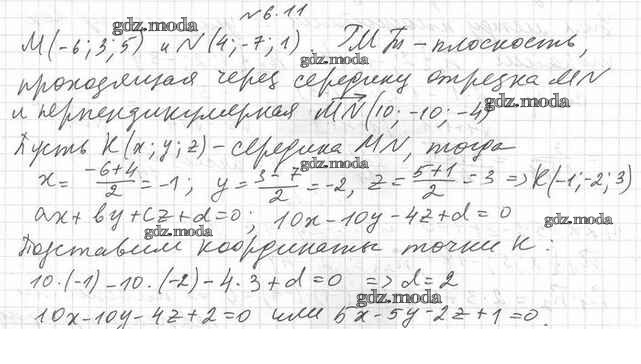 №6.11
gdz.moda
M(-6; 3; 5) и N(4; -7; 1). ГМТ - плоскость,
gdz.moda
проходящая через середину отрезка MN
gdz.moda
и перпендикулярная MN(10; -10; -4)
Пусть K(x; y; z) - середина MN, тогда
gdz.moda
x = (-6+4)/2 = -1; y = (3-7)/2 = -2, z = (5+1)/2 = 3 => K(-1; -2; 3)
ax + by + cz + d = 0; 10x - 10y - 4z + d = 0
gdz.moda
gdz.moda
Подставим координаты точки K:
10·(-1) - 10·(-2) - 4·3 + d = 0 => d = 2
gdz.moda
10x - 10y - 4z + 2 = 0 или 5x - 5y - 2z + 1 = 0.